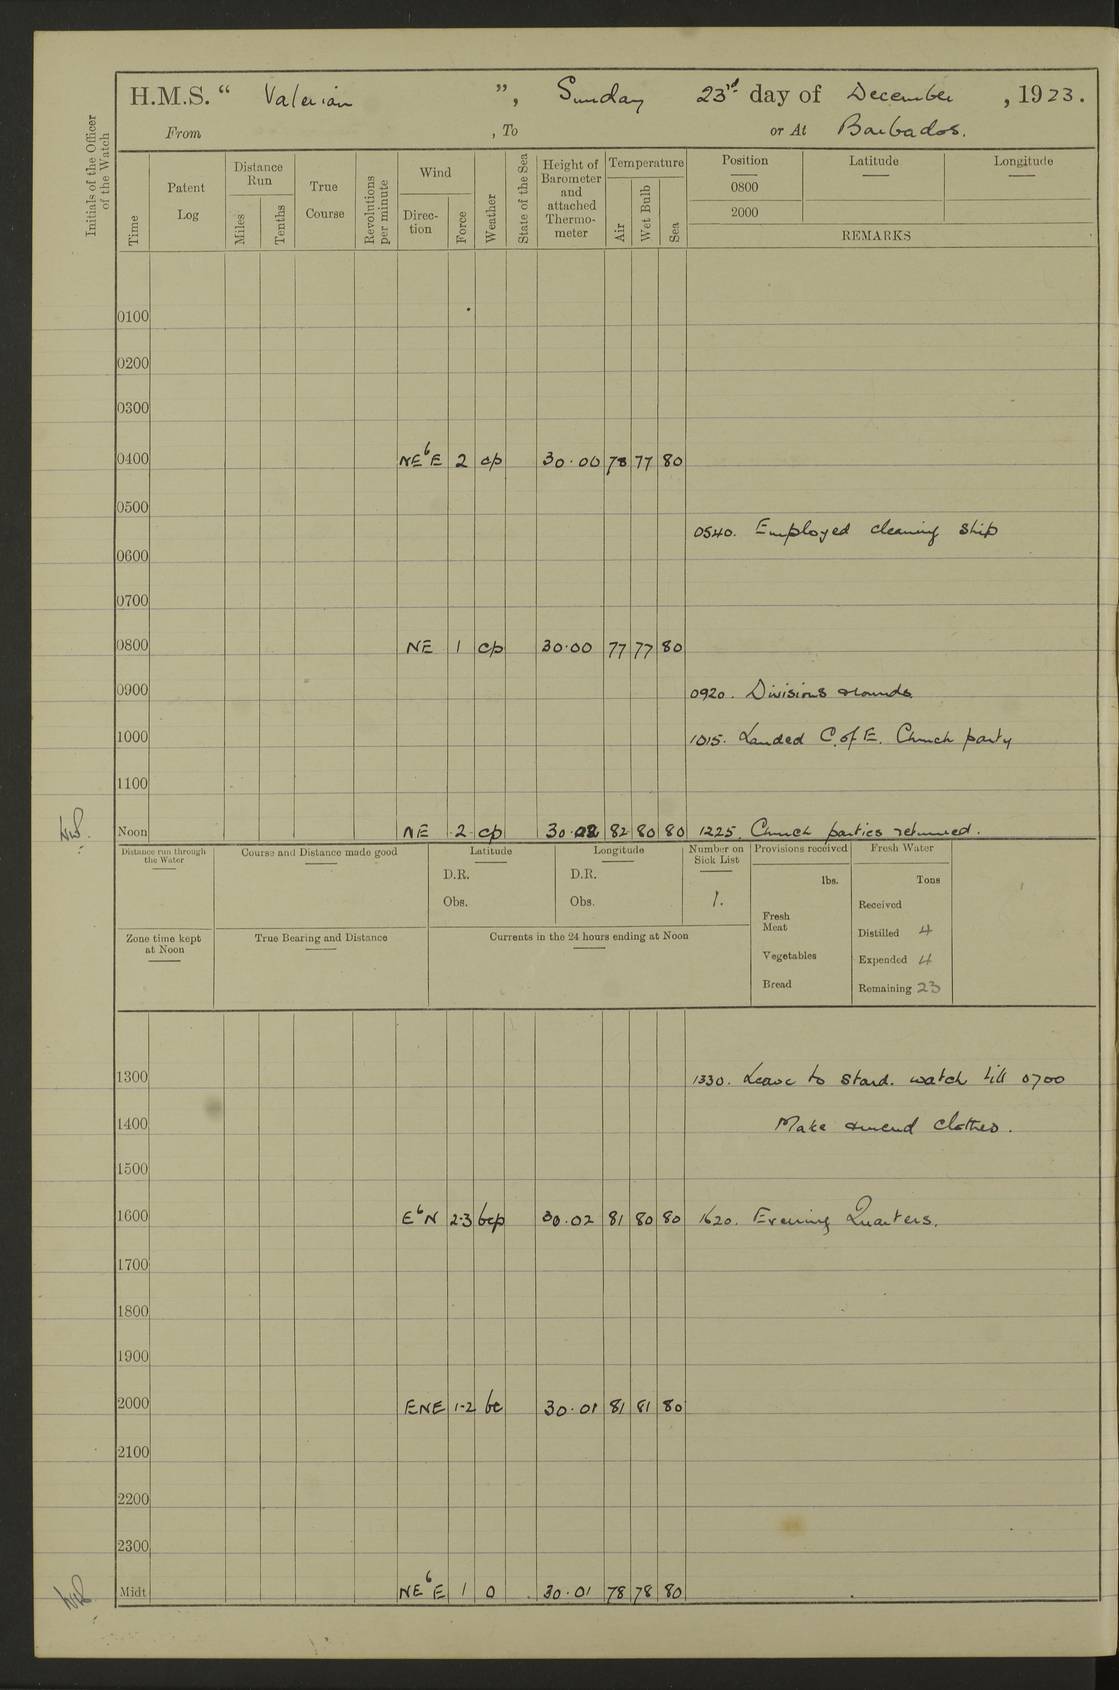 H.M.S. “ Valerian ”, Sunday 23rd day of December , 1923.
From , To or At Barbados.
Initials of the Officer of the Watch
Time
Patent Log
Distance Run
Miles
Tenths
True Course
Revolutions per minute
Wind
Direc-tion
Force
Weather
State of the Sea
Height of Barometer and attached Thermo-meter
Temperature
Air
Wet Bulb
Sea
Position Latitude Longitude
0800
2000
REMARKS
0100
0200
0300
0400 NEbE 2 cp 30.00 78 77 80
0500
0540. Employed cleaning ship
0600
0700
0800 NE 1 cp 30.00 77 77 80
0900 0920. Divisions & rounds.
1000 1015. Landed C. of E. Church party
1100
Noon NE 2 cp 30.02 82 80 80 1225. Church parties returned.
Distance run through the Water
Course and Distance made good
Latitude
D.R.
Obs.
Longitude
D.R.
Obs.
Number on Sick List
1.
Provisions received
lbs.
Fresh Meat
Vegetables
Bread
Fresh Water
Tons
Received
Distilled 4
Expended 4
Remaining 23
Zone time kept at Noon
True Bearing and Distance
Currents in the 24 hours ending at Noon
1300 1330. Leave to stard. watch till 0700
1400 Make & mend clothes.
1500
1600 EbN 2-3 bcp 30.02 81 80 80 1620. Evening Quarters.
1700
1800
1900
2000 ENE 1-2 bc 30.01 81 81 80
2100
2200
2300
Midt NEbE 1 o 30.01 78 78 80